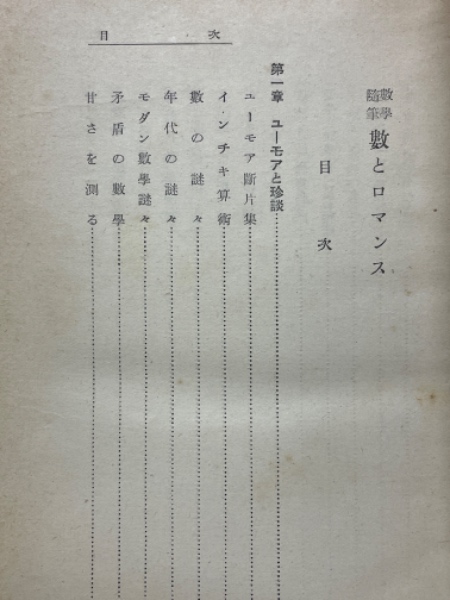 目次
數學隨筆 數とロマンス
目次
第一章 ユーモアと珍談
ユーモア斷片集
インチキ算術
數の謎々
年代の謎々
モダン數學謎々
矛盾の數學
甘さを測る